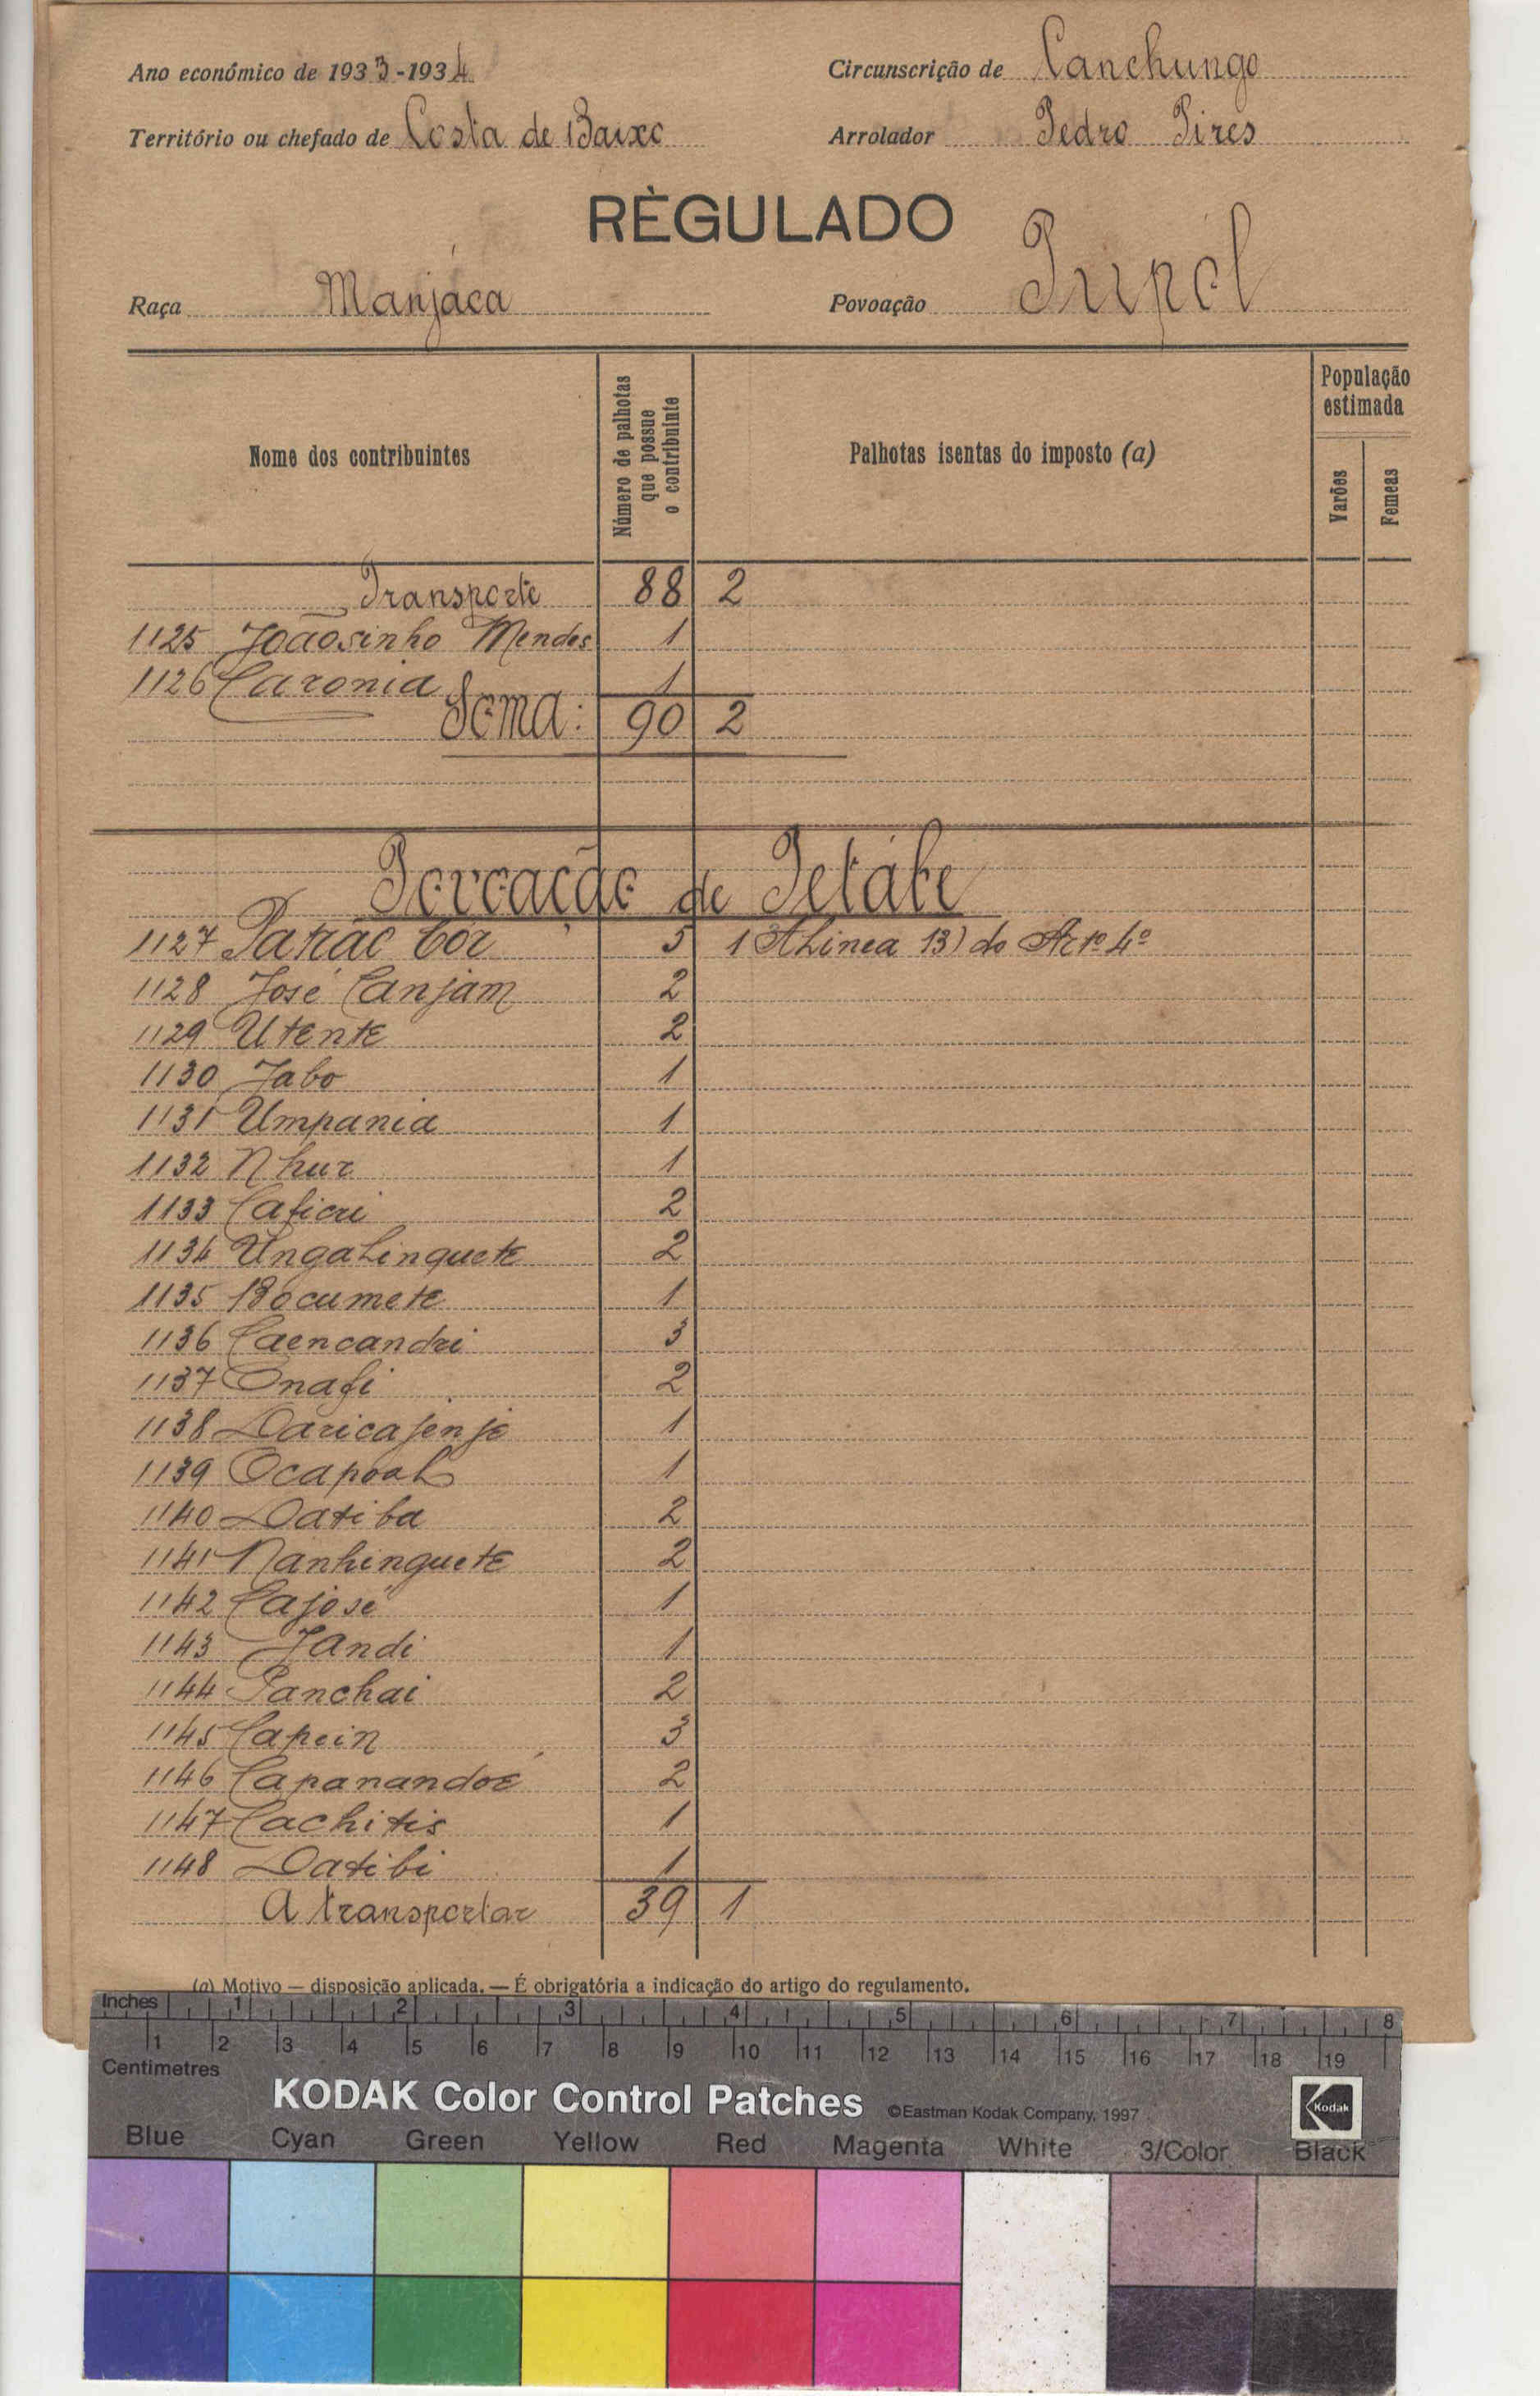 Ano económico de 1933-1934 Circunscrição de Canchungo
Território ou chefado de Costa de Baixo Arrolador Pedro Pires
RÈGULADO
Raça Manjáca Povoação
Nome dos contribuintes Número de palhotas que possue o contribuinte Palhotas isentas do imposto (a) População estimada Varões Femeas
Transporte 88 2
1125 Joãosinho Mendes 1
1126 Caronia 1
Soma: 90 2
Povoação de
1127 5 1 Alinea B) do Artº 4º
1128 José Canjam 2
1129 Utente 2
1130 Jabo 1
1131 Umpania 1
1132 Nhur 1
1133 2
1134 Ungalinquete 2
1135 Bocumete 1
1136 Caencandri 3
1137 Onafi 2
1138 Daricajenje 1
1139 Ocapoal 1
1140 Datiba 2
1141 Nanhinguete 2
1142 Cajosé 1
1143 Jandi 1
1144 Panchai 2
1145 3
1146 2
1147 Cachitis 1
1148 Datibi 1
A transportar 39 1
(a) Motivo — disposição aplicada. — É obrigatória a indicação do artigo do regulamento.
Inches 1 2 3 4 5 6 7 8
1 2 3 4 5 6 7 8 9 10 11 12 13 14 15 16 17 18 19
Centimetres
KODAK Color Control Patches ©Eastman Kodak Company, 1997 Kodak
Blue Cyan Green Yellow Red Magenta White 3/Color Black